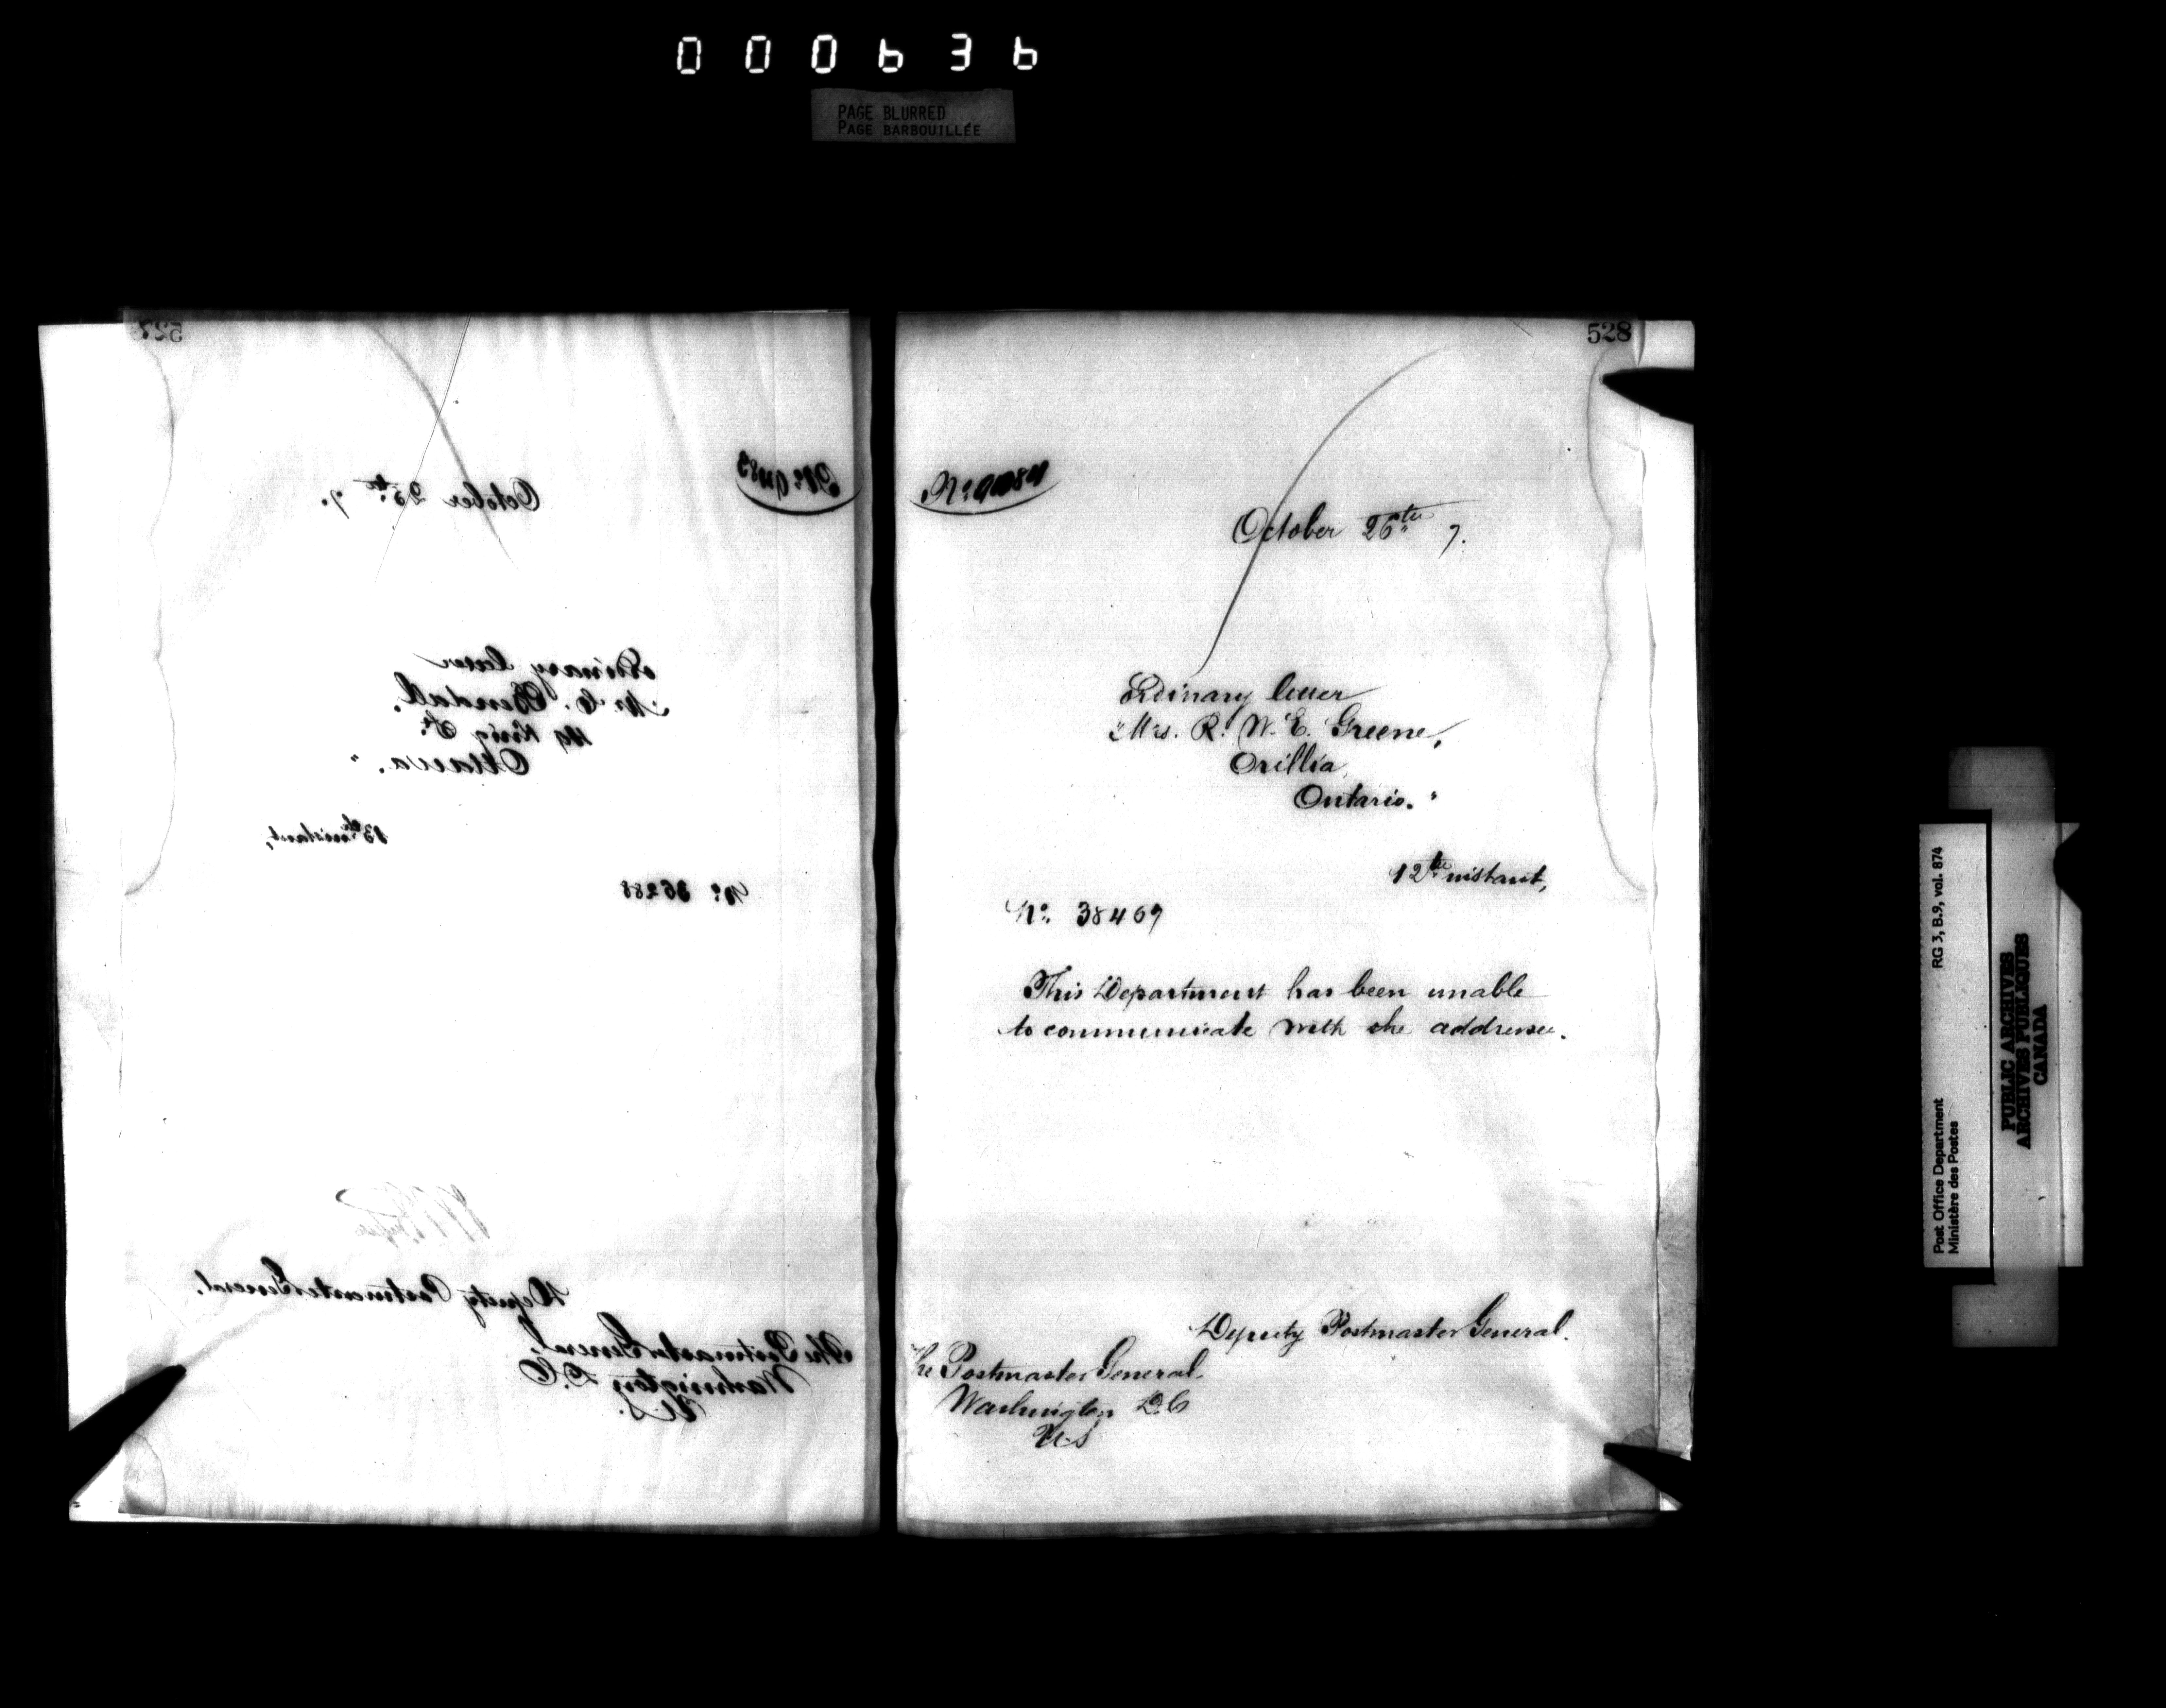 000636
PAGE BLURRED
PAGE BARBOUILLÉE
527
October 25th 7.
Ordinary letter
Mr. C. Bendall,
King St.
Ottawa."
13th instant,
No. 36288
Deputy Postmaster General.
The Postmaster General,
Washington D.C
U.S.
528
October 26th 7.
Ordinary letter
"Mrs. R. W. E. Greene,
Orillia,
Ontario."
12th instant,
No. 38467
This Department has been unable
to communicate with the addressee.
Deputy Postmaster General.
The Postmaster General,
Washington D.C
U.S
Post Office Department
Ministère des Postes
RG 3, B.9, vol. 874
PUBLIC ARCHIVES
ARCHIVES PUBLIQUES
CANADA